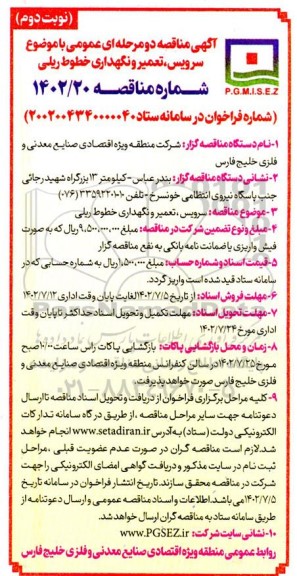 (نوبت دوم)
آگهی مناقصه دو مرحله ای عمومی با موضوع
سرویس، تعمیر و نگهداری خطوط ریلی
شـماره مناقصـه ۱۴۰۲/۲۰
P.G.M.I.S.E.Z
(شماره فراخوان در سامانه ستاد ۲۰۰۲۰۰۴۳۴۰۰۰۰۰۴۰)
۱-نام دستگاه مناقصه گزار: شرکت منطقه ویژه اقتصادی صنایع معدنی و
فلزی خلیج فارس
۲- نشانی دستگاه مناقصه گزار: بندر عباس - کیلومتر ۱۳ بزرگراه شهید رجائی
جنب پاسگاه نیروی انتظامی خونسرخ - تلفن ۱۰-۳۳۵۹۲۲۰۰ (۰۷۶)
۳- موضوع مناقصه: سرویس ، تعمیر و نگهداری خطوط ریلی
۴- مبلغ و نوع تضمین شرکت در مناقصه: مبلغ ۹،۵۰۰،۰۰۰،۰۰۰ ریال که به صورت
فیش واریزی یا ضمانت نامه بانکی به نفع مناقصه گزار
۵- قیمت اسناد و شماره حساب: مبلغ ۱،۰۰۰،۰۰۰ ریال به شماره حسابی که در
سامانه ستاد قید شده است واریز گردد.
۶- مهلت فروش اسناد: از تاریخ ۱۴۰۲/۷/۵ لغایت پایان وقت اداری ۱۴۰۲/۷/۱۲
۷- مهلت تحویل اسناد: مهلت تکمیل و تحویل اسناد حداکثر تا پایان وقت
اداری مورخ ۱۴۰۲/۷/۲۴
۸- زمان و محل بازگشایی پاکات: بازگشایی پاکات راس ساعت ۱۰:۰۰ صبح
مورخ ۱۴۰۲/۷/۲۵ در سالن کنفرانس منطقه ویژه اقتصادی صنایع معدنی و
فلزی خلیج فارس صورت خواهد پذیرفت.
۹- کلیه مراحل برگزاری فراخوان از دریافت و تحویل اسناد مناقصه تا ارسال
دعوتنامه جهت سایر مراحل مناقصه ، از طریق درگاه سامانه تدارکات
الکترونیکی دولت (ستاد) به آدرس www.setadiran.ir انجام خواهد
شد. لازم است مناقصه گران در صورت عدم عضویت قبلی ، مراحل
ثبت نام در سایت مذکور و دریافت گواهی امضای الکترونیکی را جهت
شرکت در مناقصه محقق سازند. تاریخ انتشار فراخوان در سامانه تاریخ
۱۴۰۲/۷/۵ می باشد. اطلاعات و اسناد مناقصه عمومی و ارسال دعوتنامه از
طریق سامانه ستاد به مناقصه گران ارسال خواهد شد.
۱۰- نشانی سایت شرکت: www.PGSEZ.ir
روابط عمومی منطقه ویژه اقتصادی صنایع معدنی و فلزی خلیج فارس